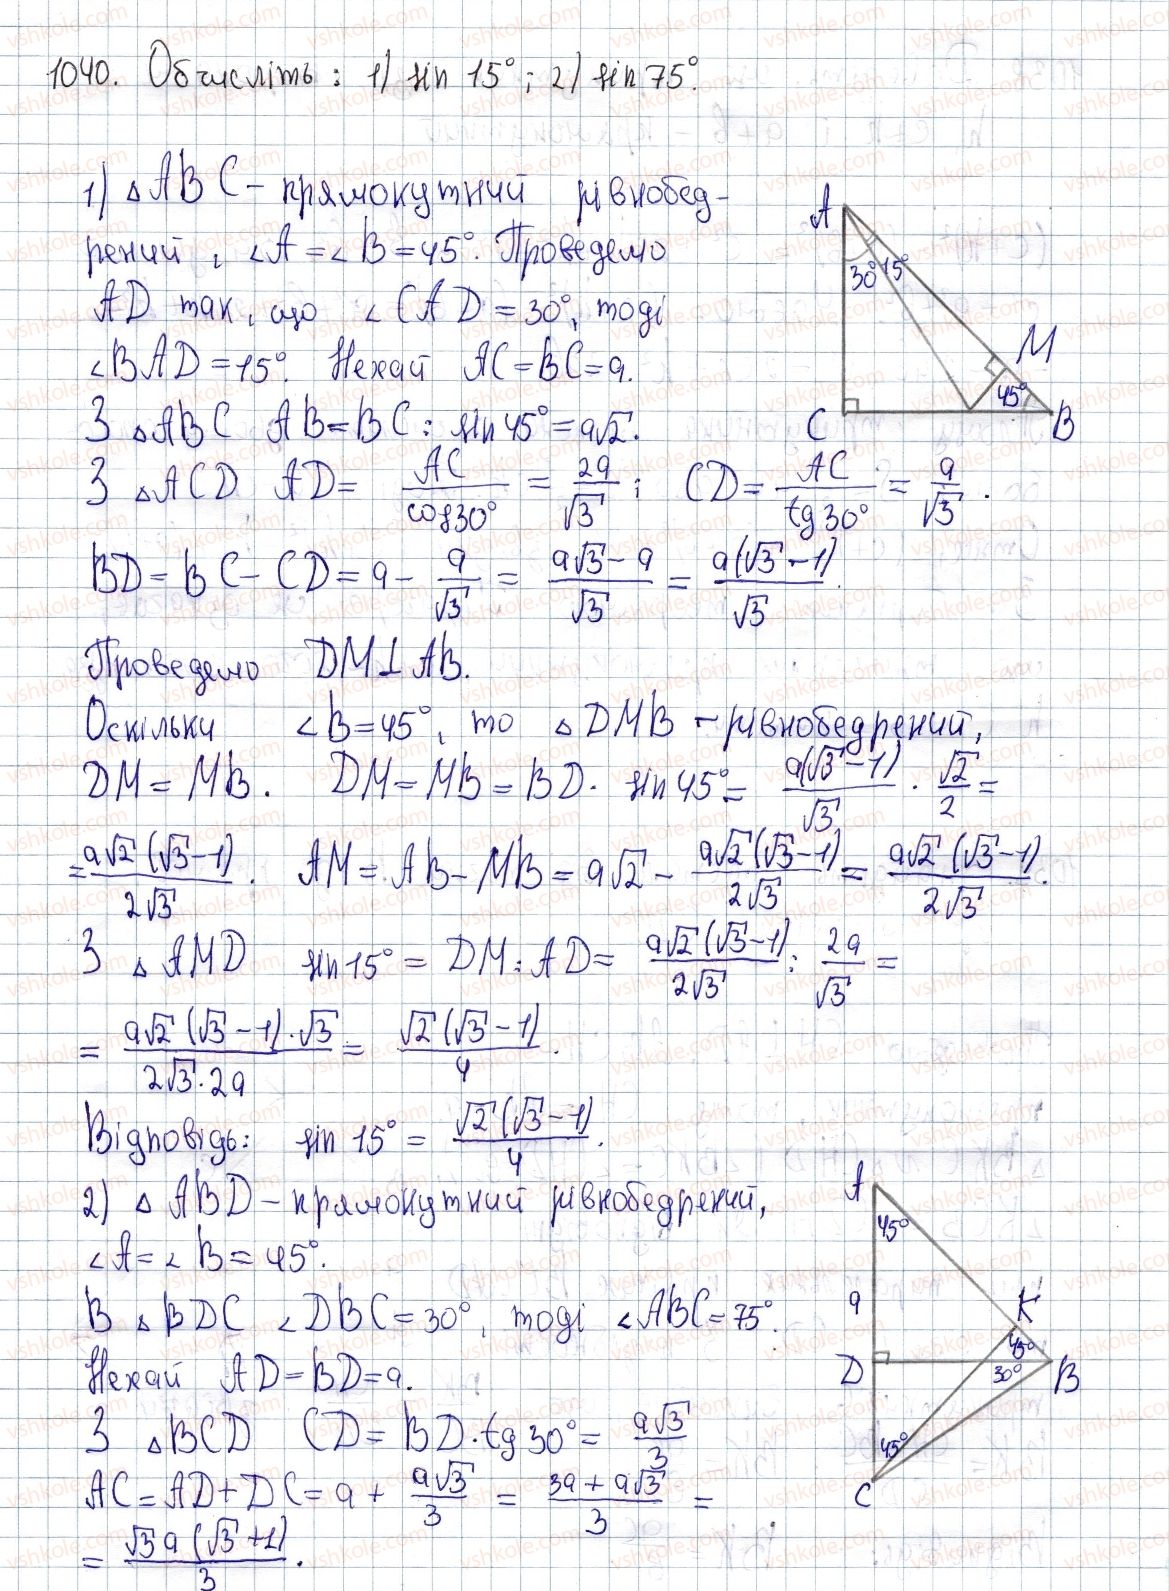 1040. Обчисліть: 1) sin 15°; 2) sin 75°.
1) △ABC – прямокутний рівнобед-
рений, ∠A = ∠B = 45°. Проведемо
AD так, що ∠CAD = 30°, тоді
∠BAD = 15°. Нехай AC = BC = a.
З △ABC AB = BC : sin 45° = a√2.
З △ACD AD = AC/cos 30° = 2a/√3; CD = AC/tg 30° = a/√3.
BD = BC – CD = a – a/√3 = (a√3 – a)/√3 = a(√3 – 1)/√3.
Проведемо DM⊥AB.
Оскільки ∠B = 45°, то △DMB – рівнобедрений,
DM = MB. DM = MB = BD · sin 45° = a(√3 – 1)/√3 · √2/2 =
= a√2(√3 – 1)/2√3. AM = AB – MB = a√2 – a√2(√3 – 1)/2√3 = a√2(√3 – 1)/2√3.
З △AMD sin 15° = DM : AD = a√2(√3 – 1)/2√3 : 2a/√3 =
= a√2(√3 – 1) · √3/2√3 · 2a = √2(√3 – 1)/4.
Відповідь: sin 15° = √2(√3 – 1)/4.
2) △ABD – прямокутний рівнобедрений,
∠A = ∠B = 45°.
В △BDC ∠DBC = 30°, тоді ∠ABC = 75°.
Нехай AD = BD = a.
З △BCD CD = BD · tg 30° = a√3/3
AC = AD + DC = a + a√3/3 = (3a + a√3)/3 =
= √3a(√3 + 1)/3.
A
30° 15°
M
45°
C
B
A
45°
a
K
45°
D
30°
B
45°
C